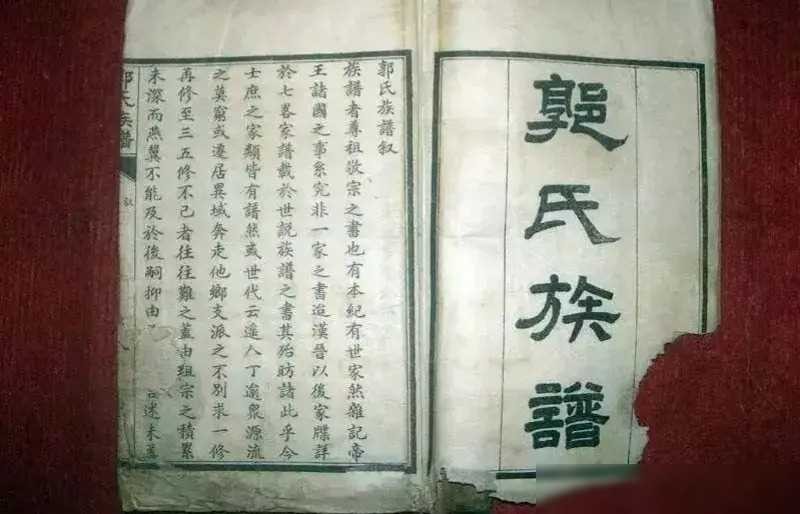 郭氏族譜
郭氏族譜叙
族譜者尊祖敬宗之書也有本紀有世家然雜記帝
王諸國之事系究非一家之書迨漢晉以後家牒詳
於七畧家譜載於世説族譜之書其殆昉諸此乎今
士庶之家類皆有譜然或世代云遥人丁邈衆源流
之莫窮或遷居異域奔走他鄉支派之不别求一修
再修至三五修不已者往往難之蓋由祖宗之積累
未深而燕翼不能及於後嗣抑由述未善
郭氏族譜
叙